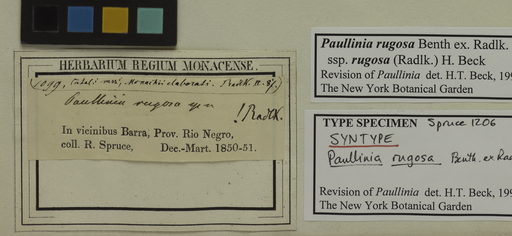 HERBARIUM REGIUM MONACENSE.
Paullinia rugosa
! Radlk.
In vicinibus Barra, Prov. Rio Negro,
coll. R. Spruce, Dec.-Mart. 1850-51.
Paullinia rugosa Benth ex. Radlk.
ssp. rugosa (Radlk.) H. Beck
Revision of Paullinia det. H.T. Beck, 199
The New York Botanical Garden
TYPE SPECIMEN Spruce 1206
SYNTYPE
Paullinia rugosa Benth. ex Rad
Revision of Paullinia det. H.T. Beck, 199
The New York Botanical Garden